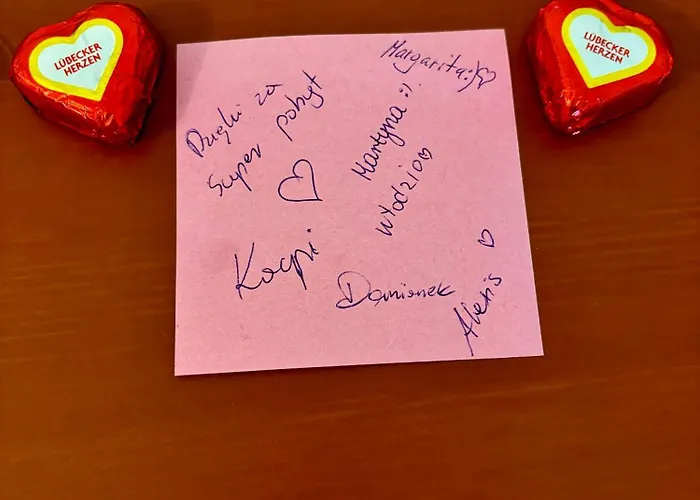 LÜBECKER
HERZEN
LÜBECKER
HERZEN
Dzięki za
super pobyt
Margarita :)
Martyna :)
Włodzio
Kacpi
Damianek
Alexis